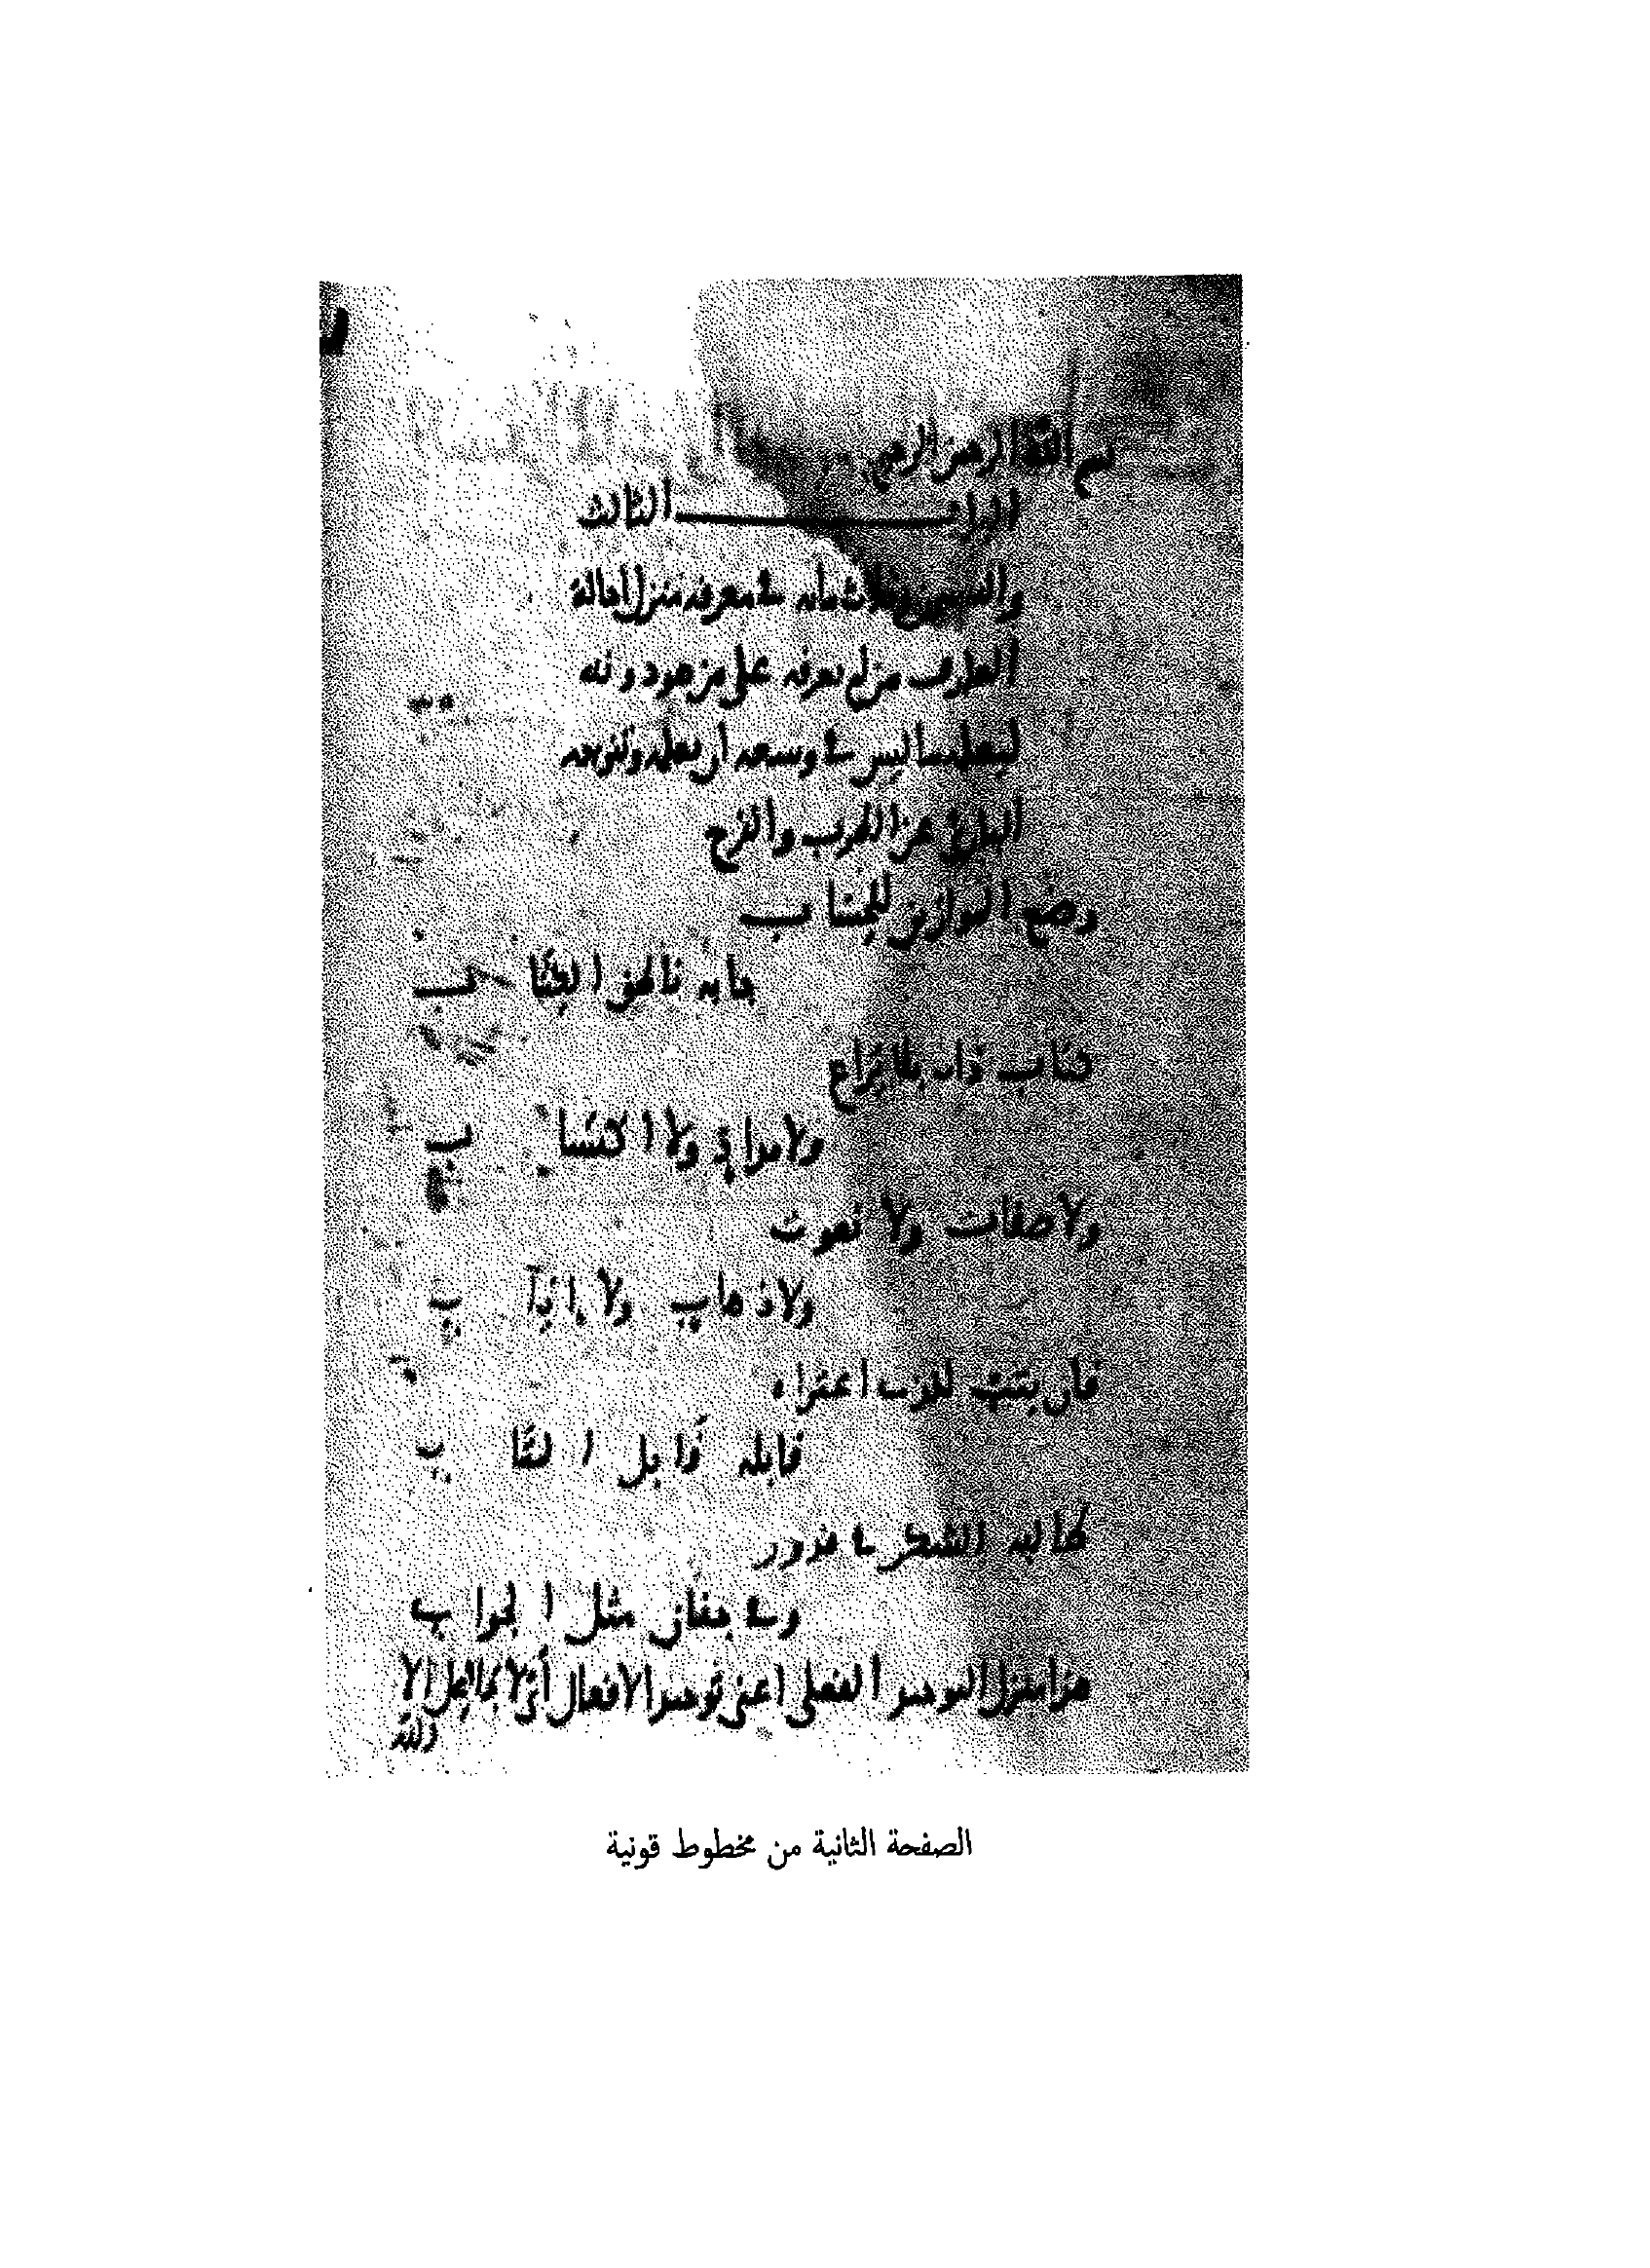 بسم الله الرحمن الرحيم
الباب الثالث
والسبعون وثلاث مايه في معرفه منزل
من لم يعرفه على من هو دونه
ليعلمه ما ليس في وسعه ان يعلمه وتنزيه
عن الطرب والفرح
وضع الموازين للحساب
جا به ناطق الكتاب
كتاب ذات بلا نزاع
ولا مرا في ولا اكتساب
ولا صفات ولا نعوت
ولا ذهاب ولا اياب
فان يتب للذي اعتراه
قابله قابل المتاب
كما له الشكر في قدور
وفي جفان مثل الجواب
هذا منزل التوحيد الفعلى اعنى توحيد الافعال أن لا فاعل الا
الله
الصفحة الثانية من مخطوط قونية